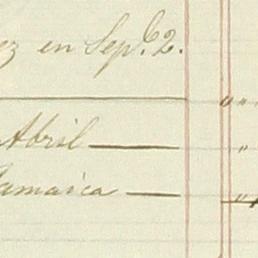 ez en Sep. 2.
" "
Abril — "
Jamaica — "